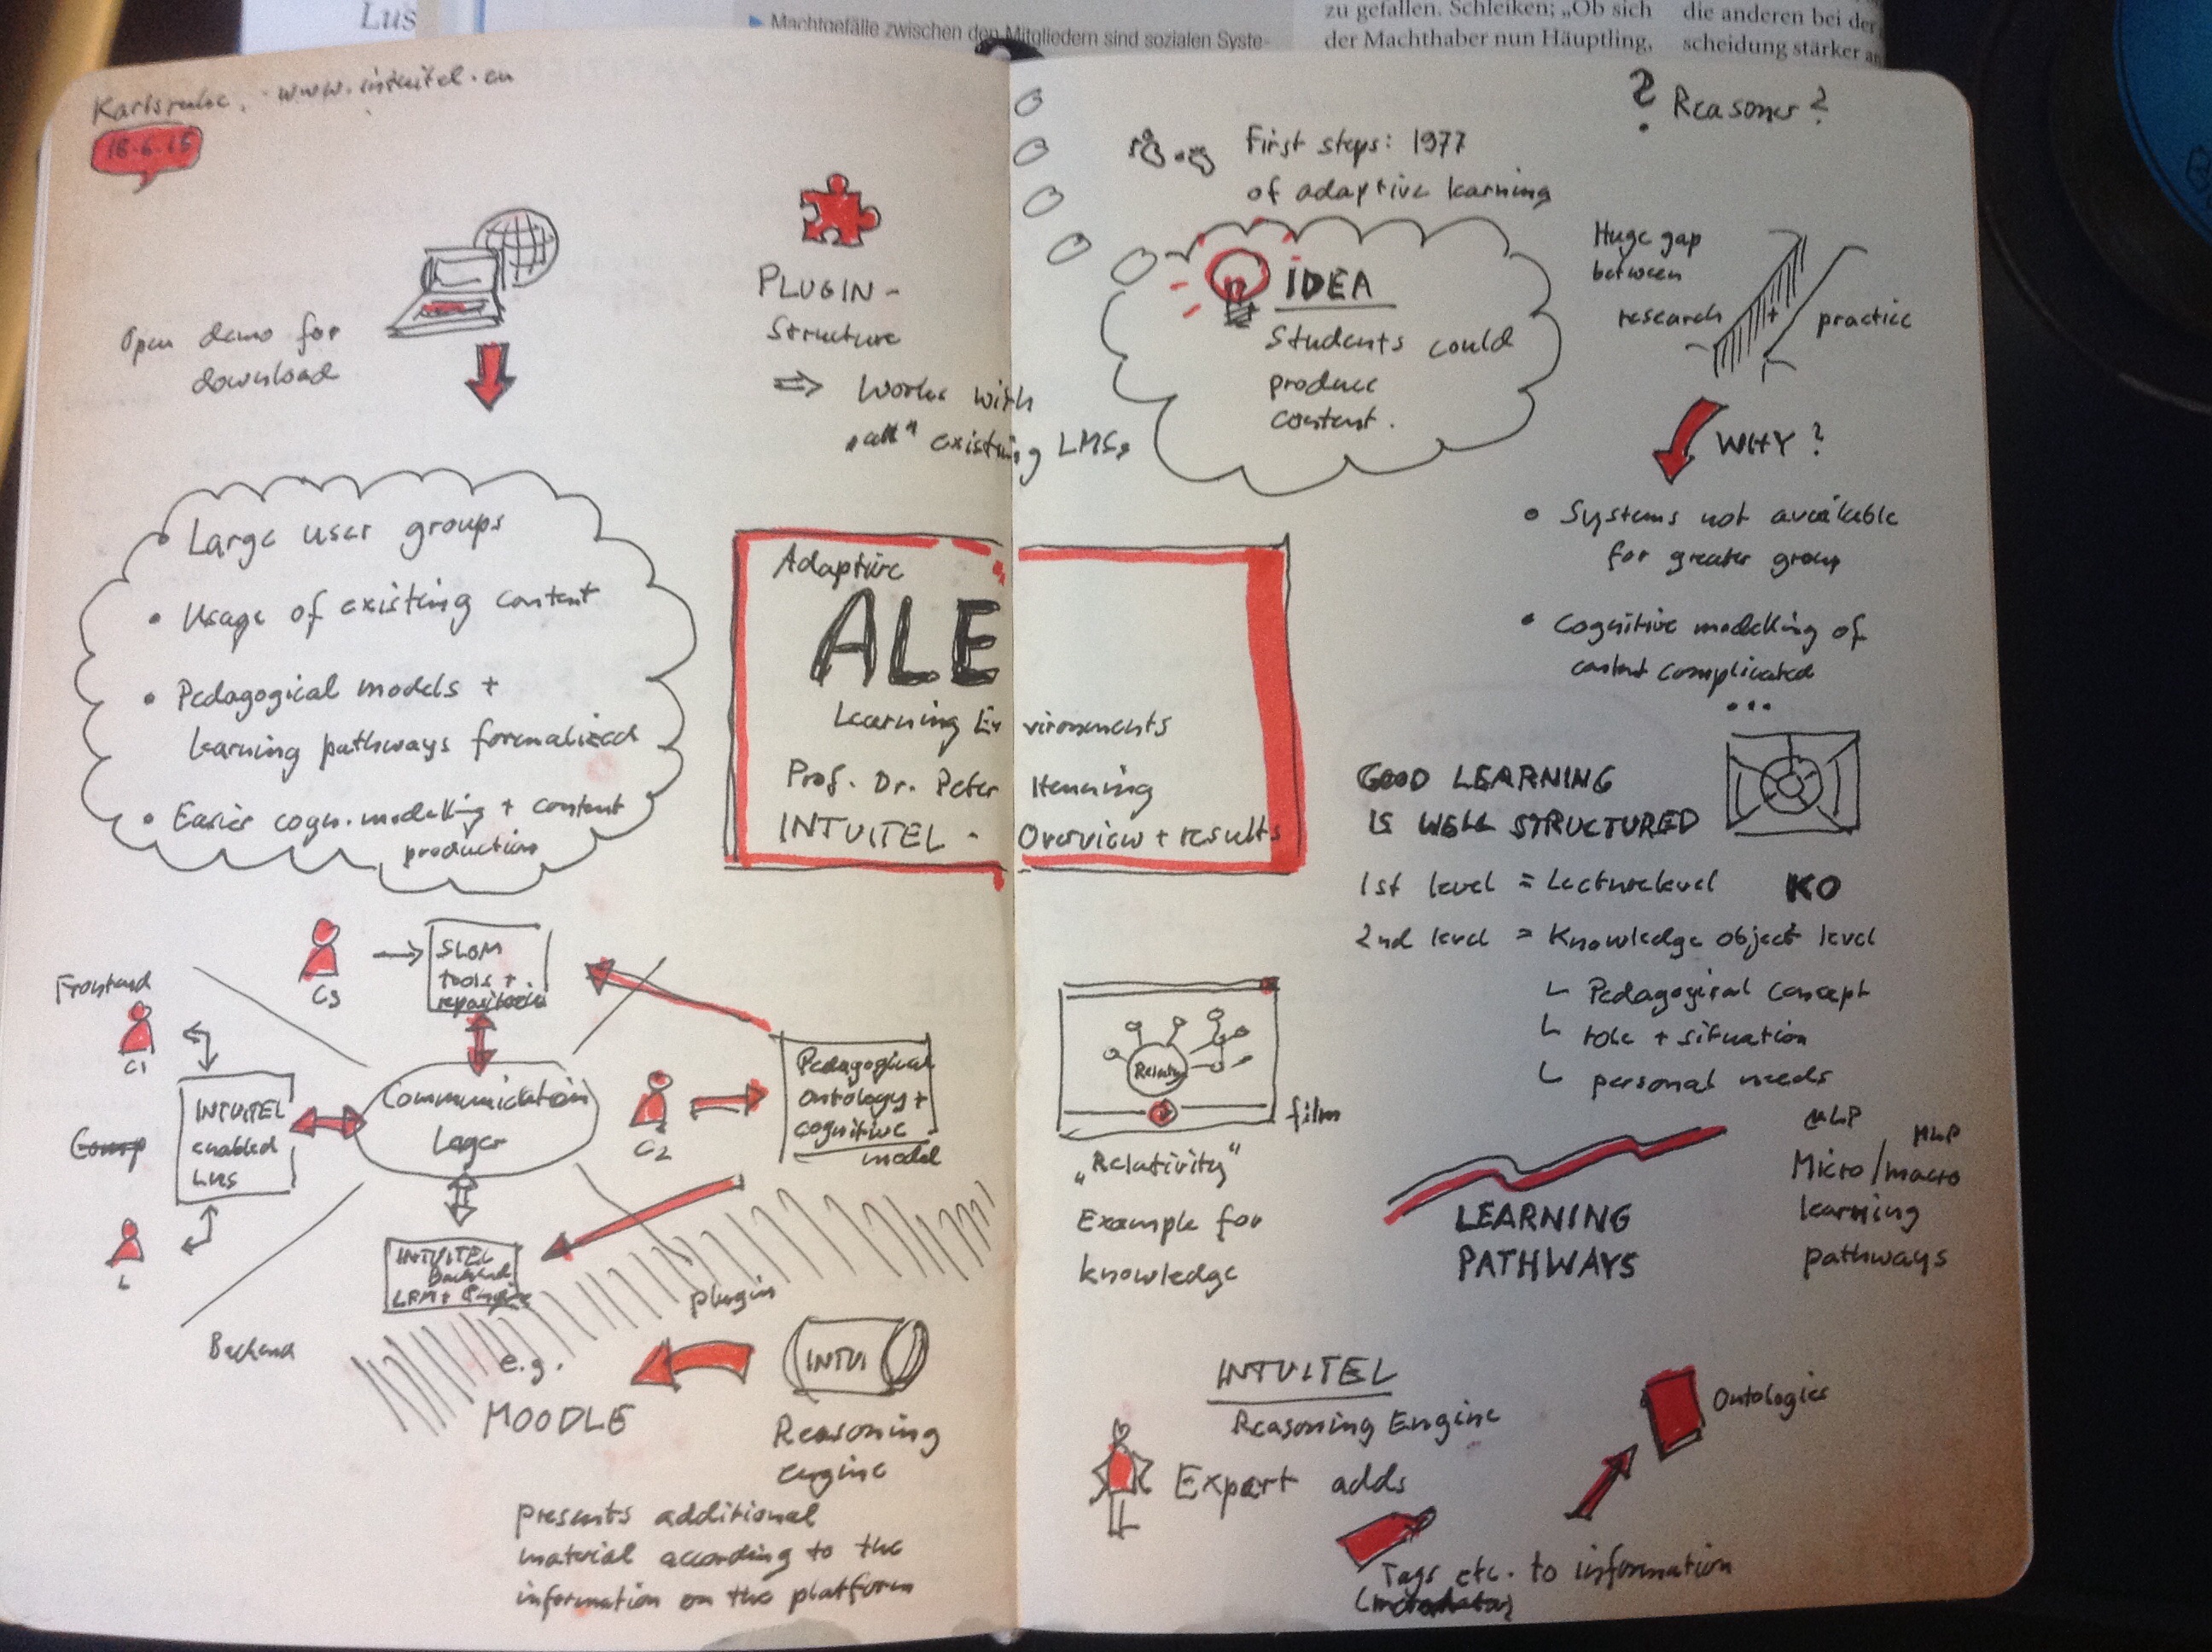 Lus
▶ Machtgefälle zwischen den Mitgliedern sind sozialen Syste-
zu gefallen. Schleiken; „Ob sich
der Machthaber nun Häuptling,
die anderen bei der
scheidung stärker
Karlsruhe. www.intuitel.eu
18.6.15
Open demo for
download
PLUGIN-
Structure
⇒ Works with
„all" existing LMSs
Large user groups
• Usage of existing content
• Pedagogical models +
learning pathways formalized
• Easier cogn. modelling + content
production
Adaptive
ALE
Learning Environments
Prof. Dr. Peter Henning
INTUITEL - Overview + results
Frontend
C3
SLOM
tools +
repositories
C1
INTUITEL
enabled
LMS
L
Communication
Layer
C2
Pedagogical
Ontology +
cognitive
model
INTUITEL
Backend
LPM + Engine
Backend
plugin
e.g.
MOODLE
INTUI
Reasoning
engine
presents additional
material according to the
information on the platform
? Reasoner ?
First steps: 1977
of adaptive learning
IDEA
Students could
produce
content.
Huge gap
between
research
practice
WHY?
• Systems not available
for greater group
• Cognitive modelling of
content complicated
...
GOOD LEARNING
IS WELL STRUCTURED
1st level = Lecturelevel KO
2nd level = Knowledge object level
└ Pedagogical concept
└ role + situation
└ personal needs
film
„Relativity"
Example for
knowledge
LEARNING
PATHWAYS
µLP
MLP
Micro/macro
learning
pathways
INTUITEL
Reasoning Engine
Ontologies
Expert adds
Tags etc. to information
(metadata)